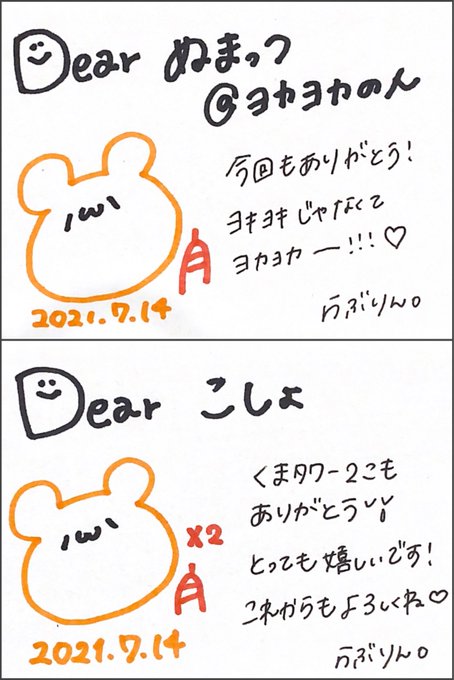 Dear ぬまっつ
@ヨカヨカのん
今回もありがとう!
ヨキヨキじゃなくて
ヨカヨカー!!!♡
らぶりん。
2021.7.14
Dear こしょ
くまタワー2こも
ありがとう
x2
とっても嬉しいです!
これからもよろしくね♡
らぶりん。
2021.7.14